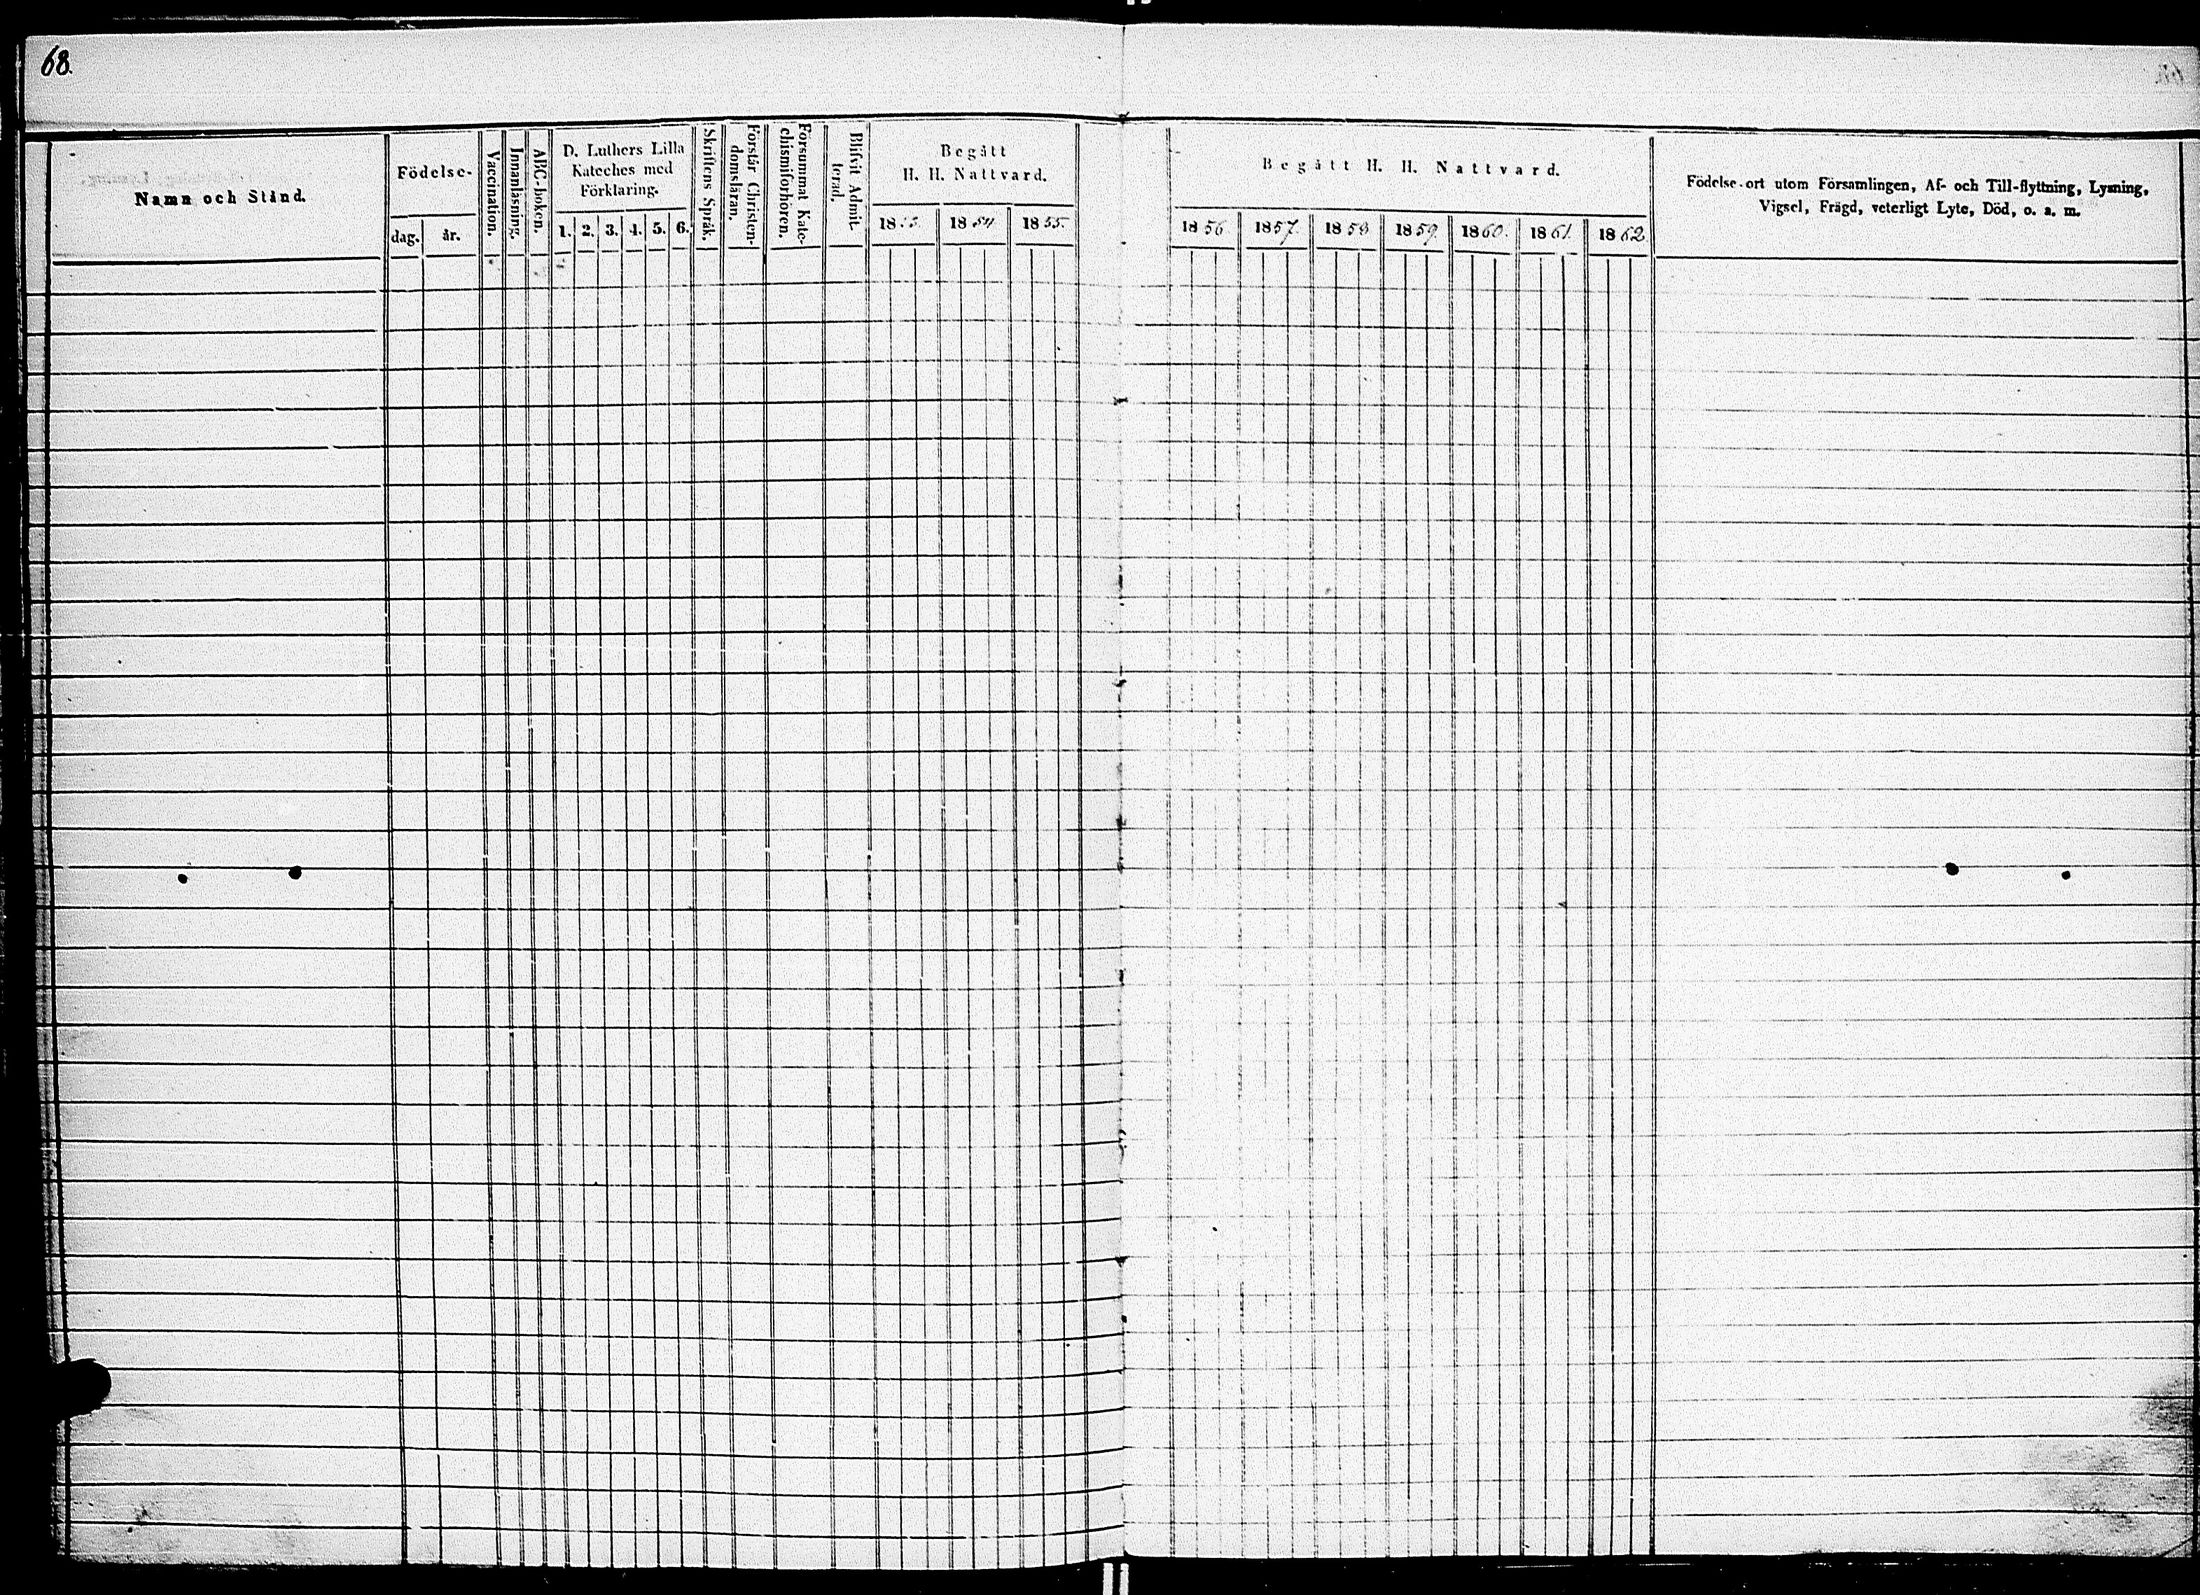 68.
Namn och Stånd.
Födelse-
dag.
år.
Vaccination.
Innanläsning.
ABC-boken.
D. Luthers Lilla
Kateches med
Förklaring.
1. 2. 3. 4. 5. 6.
Skriftens Språk.
Förstår Christen-
domsläran.
Försummat Kate-
chismiförhören.
Blifvit Admit-
terad.
Begått
H. H. Nattvard.
18 54 1855.
Begått H. H. Nattvard.
1856 1857. 1858 1859. 1860. 1861. 1862
Födelse-ort utom Församlingen, Af- och Till-flyttning, Lysning,
Vigsel, Frägd, veterligt Lyte, Död, o. s. m.